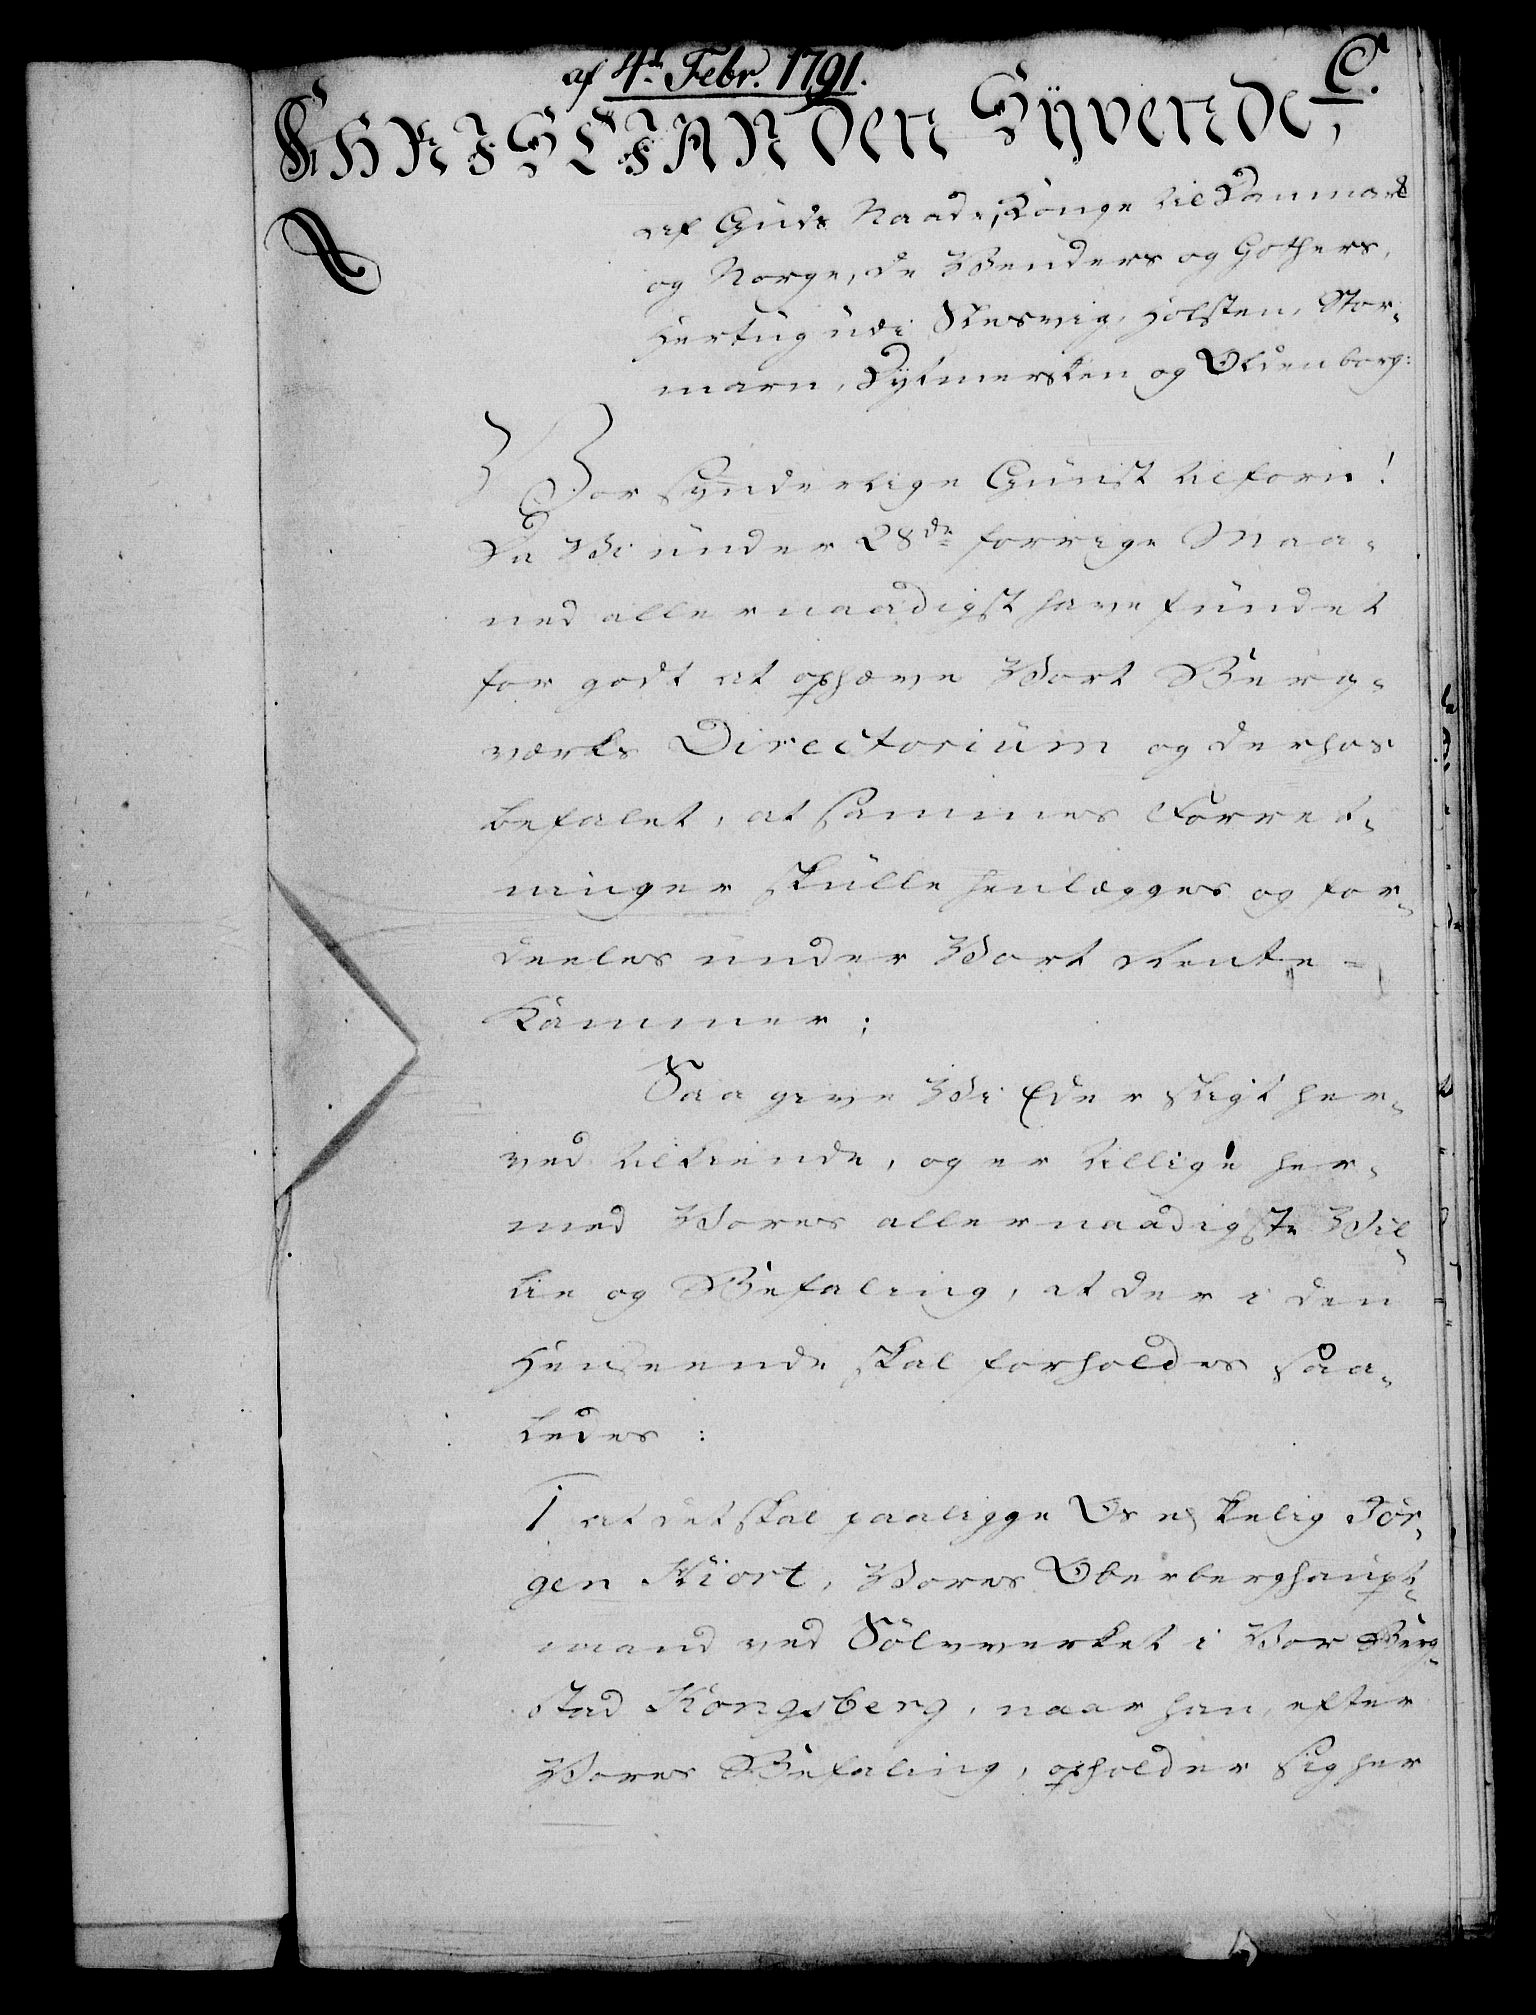 af 4de Febr. 1791.
C.
CHRISTIAN den Syvende,
af Guds Naade, Konge til Danmark
og Norge, de Wenders og Gothers,
Hertug udi Slesvig, Holsten, Stor-
marn, Dytmersken og Oldenborg:
Vor synderlige Gunst tilforn!
Da Wi under 28de forrige Maa-
ned allernaadigst have fundet
for godt at ophæve Vort Berg-
værks Directorium og derhos
befalet, at sammes Forret-
ninger skulle henlægges og for-
deeles under Vort Rente-
Kammer;
Saa give Wi Eder sligt her-
ved tilkiende, og er tillige her-
med Vores allernaadigste Vil-
lie og Befaling, at der i den
Henseende skal forholdes saa-
ledes:
1 at det skal paaligge Os elskelig Jör-
gen Hiort, Vores Oberberghaupt-
mand ved Sölvverket i Vor Berg-
stad Kongsberg, naar han, efter
Vores Befaling, opholder sig her